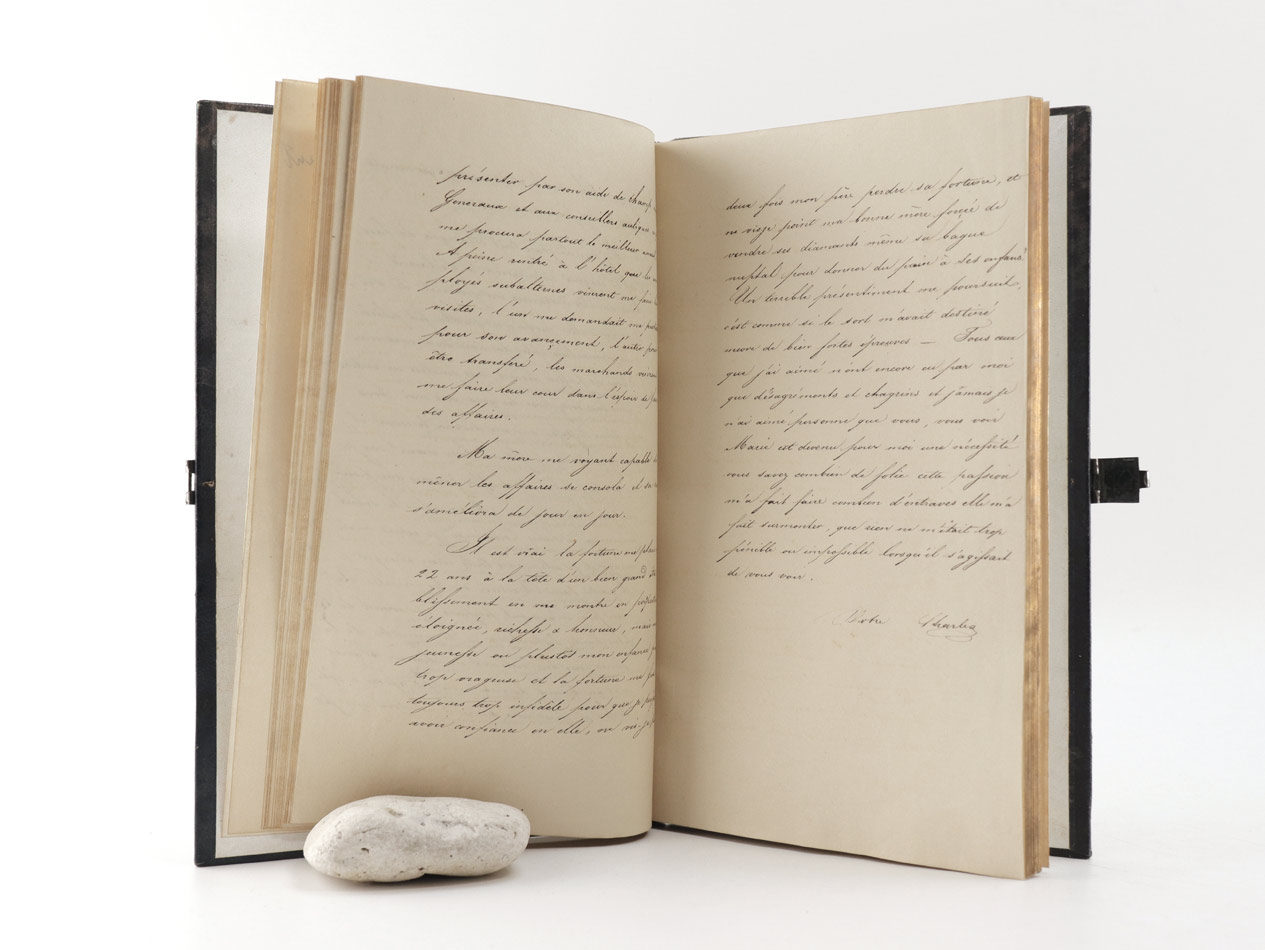 présenter par son aide de champ
Generaux et aux conseillers auliques
me procura partout le meilleur
A peine rentré à l'hôtel que les
ployés subalternes vinrent me faire
visites, l'un me demandait ma
pour son avançement, l'autre pour
être transferé, les marchands
me faire leur cour dans l'espoir de
des affaires.
Ma mère me voyant capable
mèner les affaires se consola et
s'améliora de jour en jour.
Il est vrai la fortune me
22 ans à la tête d'un bien grand
blissement en me montre en
éloignée, richesse & honneur, mais
jeunesse ou plustôt mon enfance
trop orageuse et la fortune me
toujours trop infidèle pour que je
avoir confiance en elle, ne vis-je
deux fois mon père perdre sa fortune, et
ne visje point ma bonne mère forçée de
vendre ses diamants même sa bague
nuptial pour donner du pain à ses enfans.
Un terrible présentiment me poursuit,
c'est comme si le sort m'avait destiné
encore de bien fortes épreuves — Tous ceux
que j'ai aimé n'ont encore eu par moi
que désagréments et chagrins et jamais je
n'ai aimé personne que vous, vous voir
Marie est devenu pour moi une nécéssité
vous savez combien de folie cette passion
m'a fait faire combien d'entraves elle m'a
fait surmonter, que rien ne m'était trop
pénible ou impossible lorsqu'il s'agissait
de vous voir.
Votre Charles